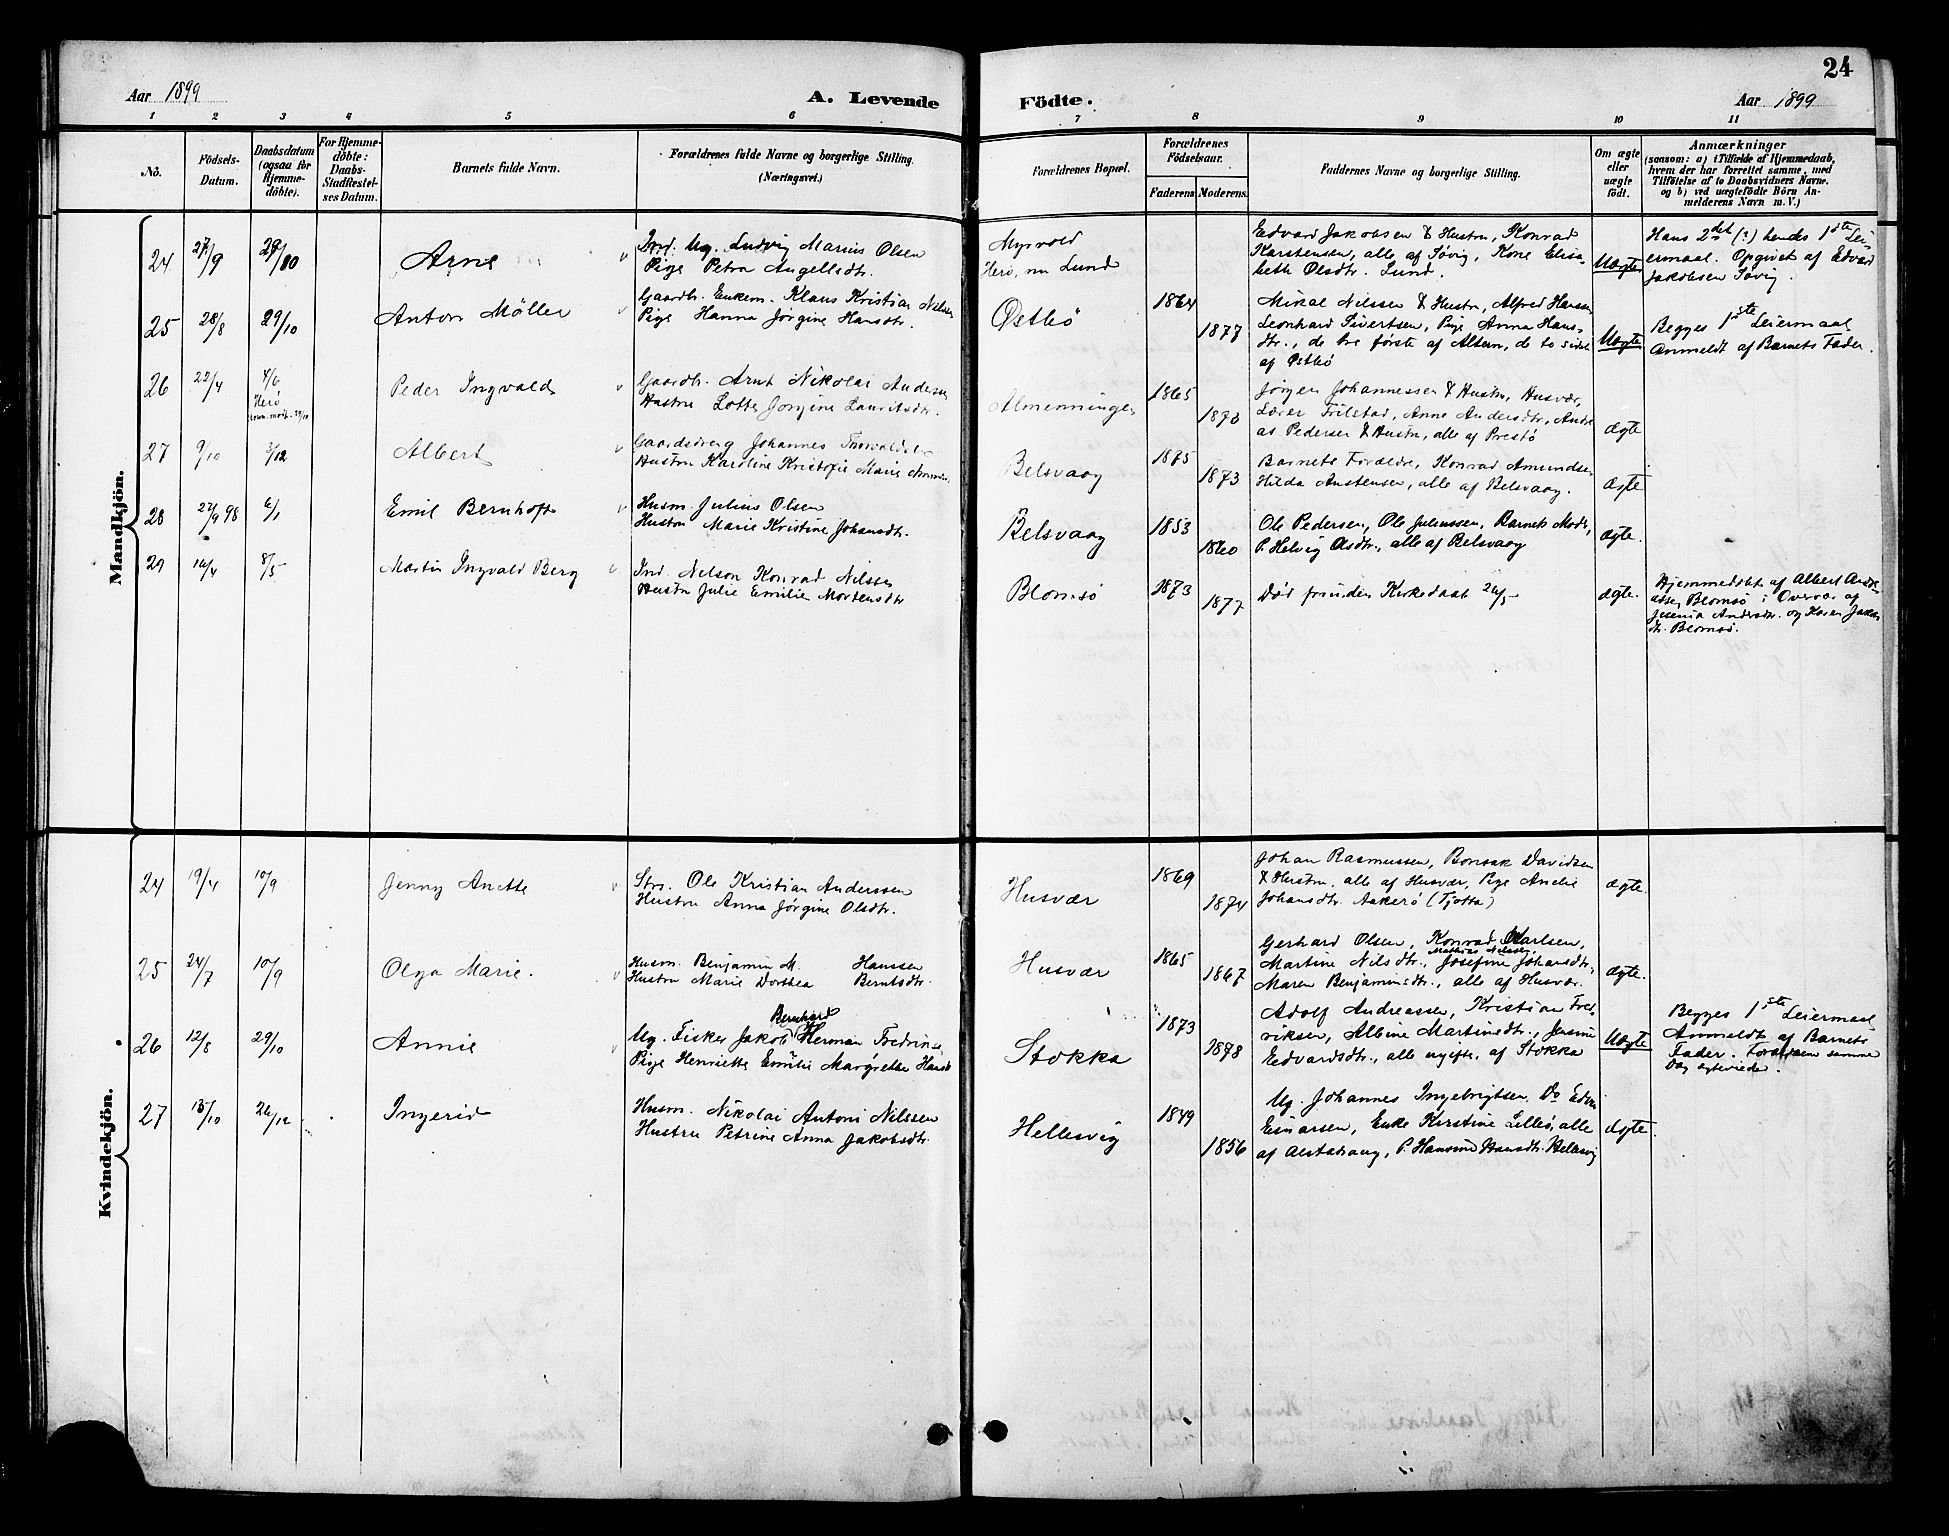 24
Aar 1899
A. Levende
Födte.
Aar 1899
1 2 3 4 5 6 7 8 9 10 11
No.
Födsels-
Datum.
Daabsdatum
(ogsaa for
Hjemme-
döbte).
For Hjemme-
döbte:
Daabs-
Stadfæstel-
ses Datum.
Barnets fulde Navn.
Forældrenes fulde Navne og borgerlige Stilling.
(Næringsvei.)
Forældrenes Bopæl.
Forældrenes
Födselsaar.
Faderens. Moderens.
Faddernes Navne og borgerlige Stilling.
Om ægte
eller
uægte
födt.
Anmærkninger
(saasom: a) i Tilfælde af Hjemmedaab,
hvem der har forrettet samme, med
Tilföielse af to Daabsvidners Navne,
og b) ved uægtefödte Börn An-
melderens Navn m. V.)
Mandkjön.
24 27/9 29/10 Arne
Ind. Ug. Ludvig Marius Olsen
Pige Petra Angellsdtr.
Myrvold
Herö, nu Lund
Edvard Jakobsen & Hustru, Konrad
Karstensen, alle af Søvig, Kone Elisa-
beth Olsdtr. Lund.
Uægte
Hans 2det (?) hendes 1ste Lei-
ermaal. Opgivet af Edvard
Jakobsen Søvig.
25 28/8 29/10 Anton Möller
Gaardbr. Enkem. Klaus Kristian Nilssen
Pige Hanna Jørgine Hansdtr.
Østbö
1864
1877
Mikal Nilssen & Hustru, Alfred Hansen
Leonhard Sivertsen, Pige Anna Hans-
dtr., de tre første af Altern, de to sidste
af Østbö
Uægte
Begges 1ste Leiermaal
Anmeldt af Barnets Fader.
26 22/4 4/6
Herö
Peder Ingvald
Gaardbr. Arnt Nikolai Andersen
Hustru Lotte Jørgine Lauritsdtr.
Almenningen
1865
1870
Jørgen Johannessen & Hustru, Husvær,
Lærer Trilstad, Anne Andersdtr., Andre-
as Pedersen & Hustru, alle af Prestö
ægte
27 9/10 3/12 Albert
Gaardsdreng Johannes Thorvaldsen
Hustru Karoline Kristofie Marie
Belsvaag
1875
1873
Barnets Forældre, Konrad Amundsen
Hilda Austensen, alle af Belsvaag.
ægte
28 27/9 98 6/1 Emil Bernhoft
Husm. Julius Olsen
Hustru Marie Kristine Johansdtr.
Belsvaag
1853
1860
Ole Pedersen, Ole Juliussen, Barnets Moder,
P. Helvig Olsdtr., alle af Belsvaag
ægte.
29 16/4 8/5 Martin Ingvald Berg
Ind. Nelson Konrad Nilssen
Hustru Julie Emilie Mortensdtr
Blomsö
1873
1877
Död forinden Kirkedaab 26/5
ægte.
Hjemmedöbt af Albert Andre-
assen Blomsö i Overvær af
Jesenia Andersdtr. og Karen Jakobs
dtr. Blomsö.
Kvindekjön.
24 19/4 10/9 Jenny Anette
Strs. Ole Kristian Anderssen
Hustru Anna Jørgine Olsdtr.
Husvær
1869
1874
Johan Rasmussen, Bonsak Davidsen
& Hustru, alle af Husvær, Pige Andrie
Johansdtr. Aakerö (Tjøtta)
ægte.
25 24/7 10/9 Olga Marie.
Husm. Benjamin M. Hanssen
Hustru Marie Dorthea Berntsdtr.
Husvær
1865
1867
Gerhard Olsen, Konrad Karlsen,
Mathias Nilssen
Martine Nilsdtr., Josefine Johansdtr.,
Maren Benjaminsdtr., alle af Husvær.
ægte.
26 12/8 29/10 Annie
Bernhard
Ug. Fisker Jakob Herman Fredriksen
Pige Henriette Emilie Margrethe Hansdtr
Stokka
1873
1878
Adolf Andreassen, Kristian Fred-
riksen, Albine Martinsdtr., Jensine
Edvardsdtr., alle ugifte, af Stokka
Uægte
Begges 1ste Leiermaal
Anmeldt af Barnets
Fader. Forældrene samme
Dag ægteviede.
27 15/10 26/12 Ingerid
Husm. Nikolai Antoni Nilssen
Hustru Petrine Anna Jakobsdtr.
Hellesvig
1849
1856
Ug. Johannes Ingebrigtsen, Do Edvard
Einarsen, Enke Kirstine Lillesö, alle
af Alstahaug, P. Hansine Hansdtr. Hellesvig
ægte.